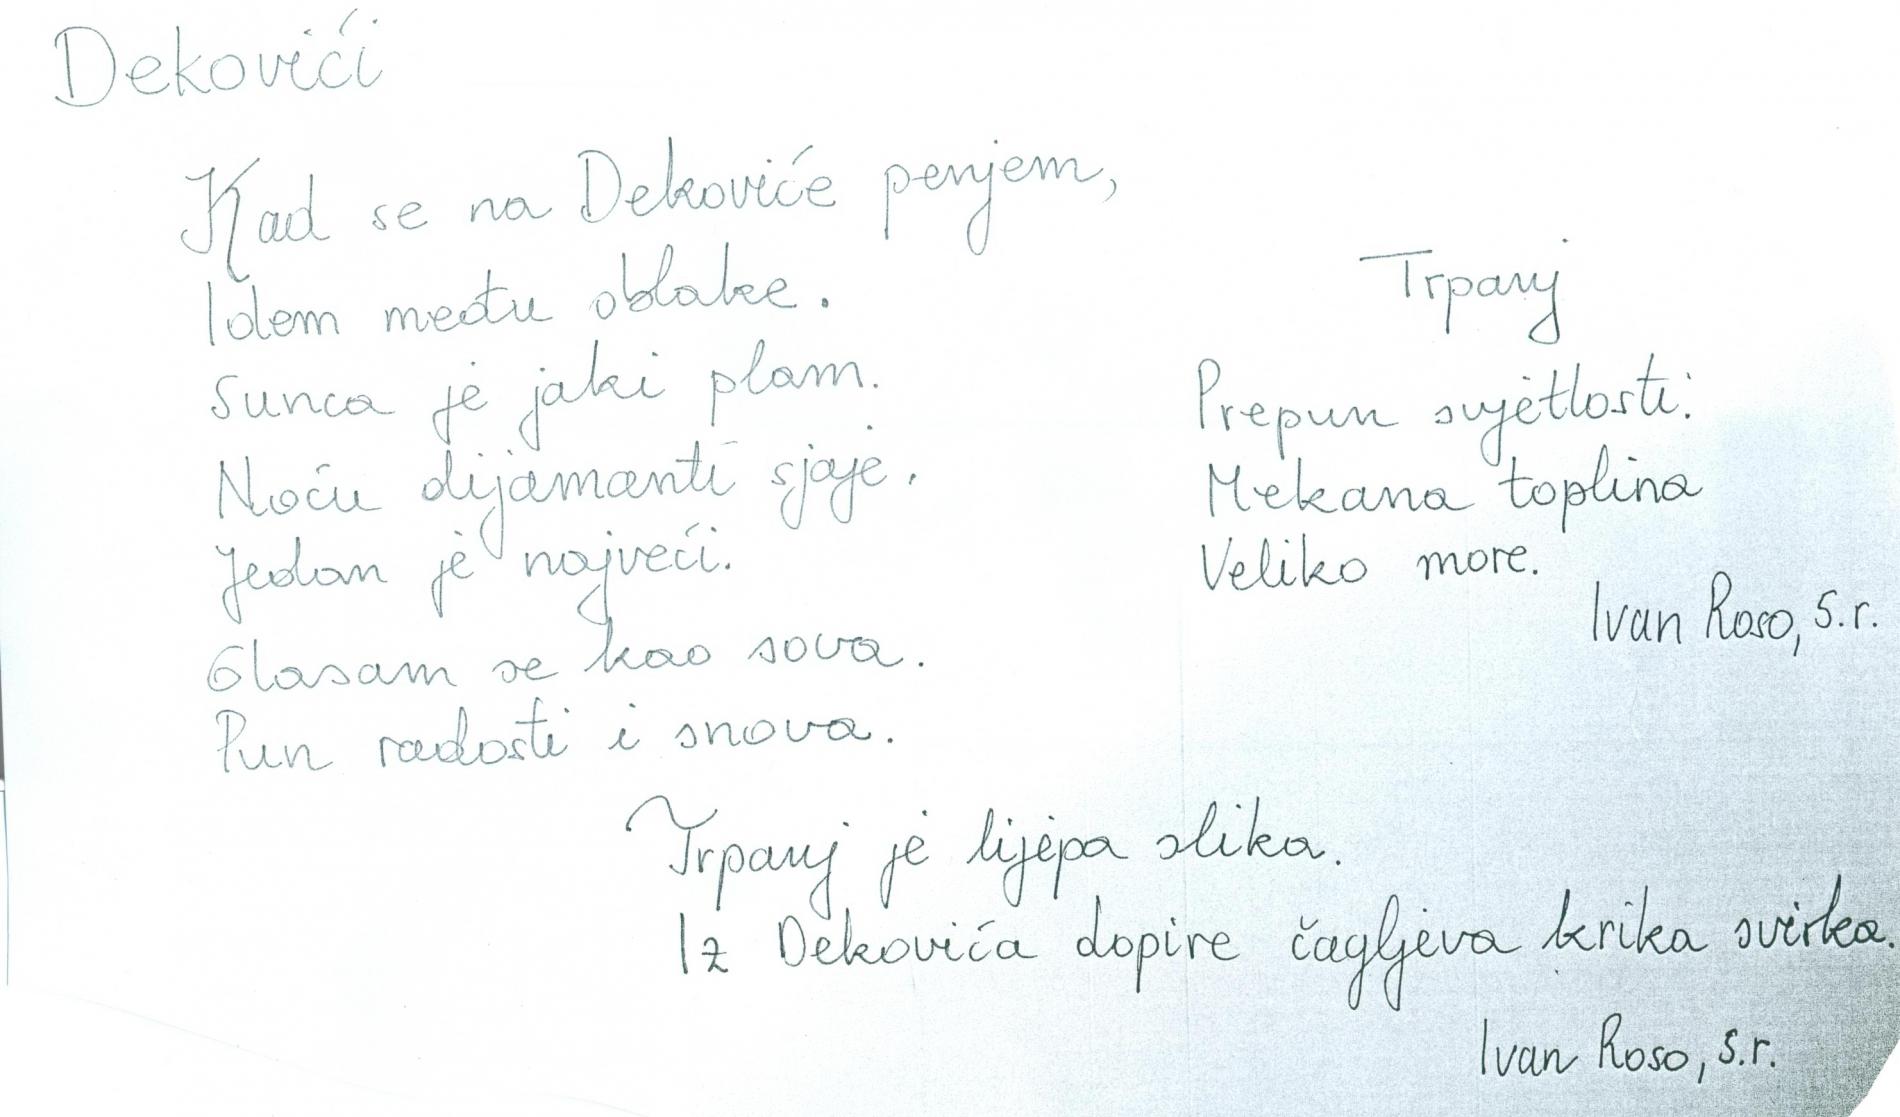 Dekovići
Kad se na Dekoviće penjem,
Idem među oblake.
Sunca je jaki plam.
Noću dijamanti sjaje.
Jedan je najveći.
Glasam se kao sova.
Pun radosti i snova.
Trpanj
Prepun svjetlosti:
Mekana toplina
Veliko more.
Ivan Roso, s.r.
Trpanj je lijepa slika.
Iz Dekovića dopire čagljeva krika svirka.
Ivan Roso, s.r.